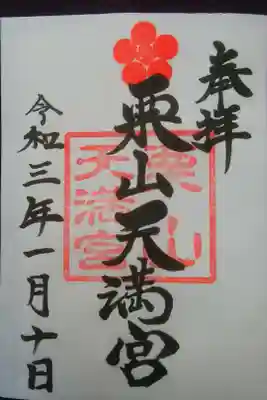 奉拝
栗山天満宮
栗山
天満宮
令和三年一月十日